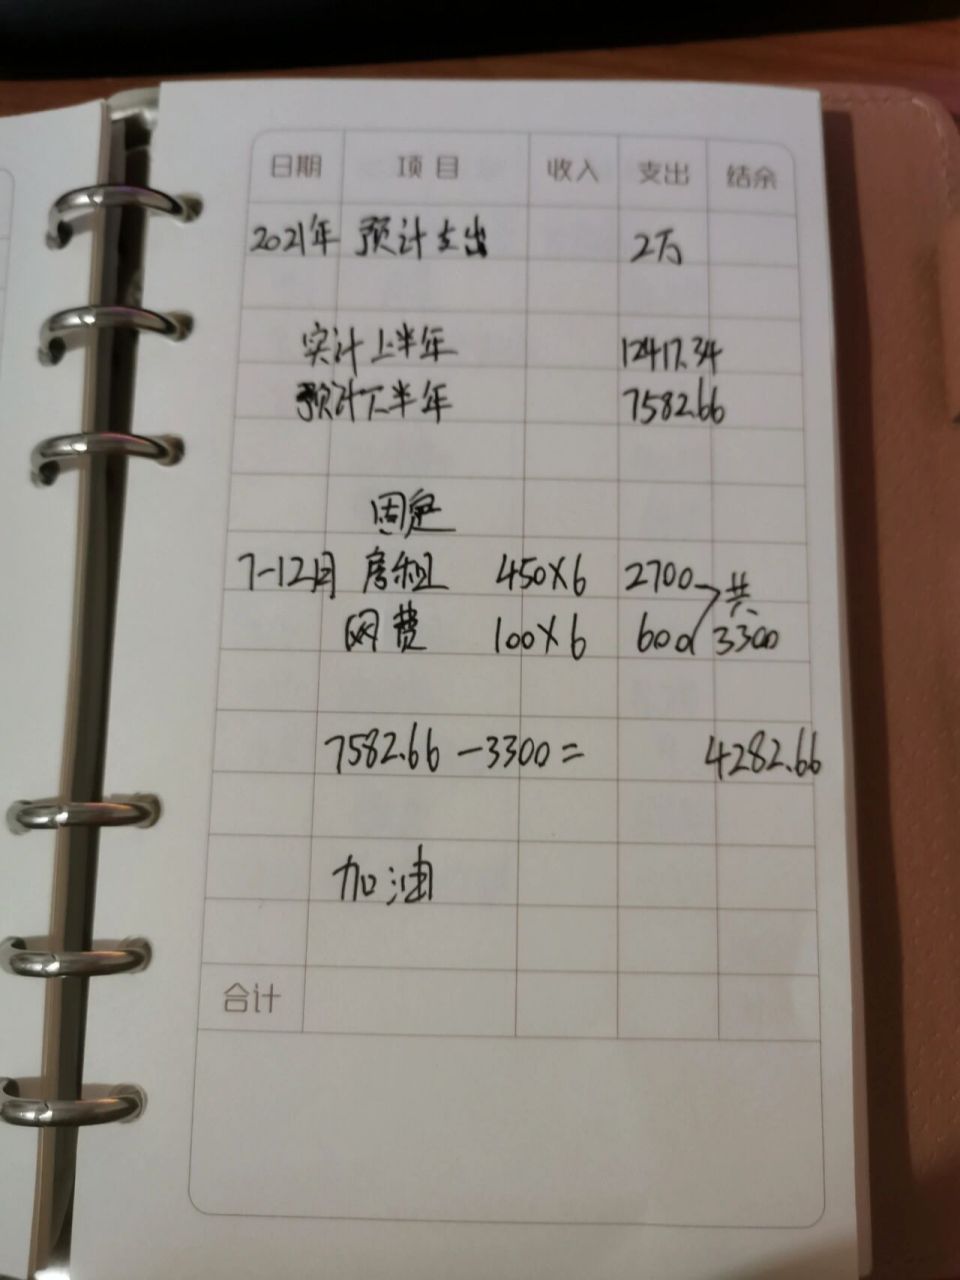 日期 项目 收入 支出 结余
2021年 预计支出 2万
实计上半年 12417.34
预计下半年 7582.66
固定
7-12月 房租 450×6 2700 共
网费 100×6 600 3300
7582.66-3300= 4282.66
加油
合计